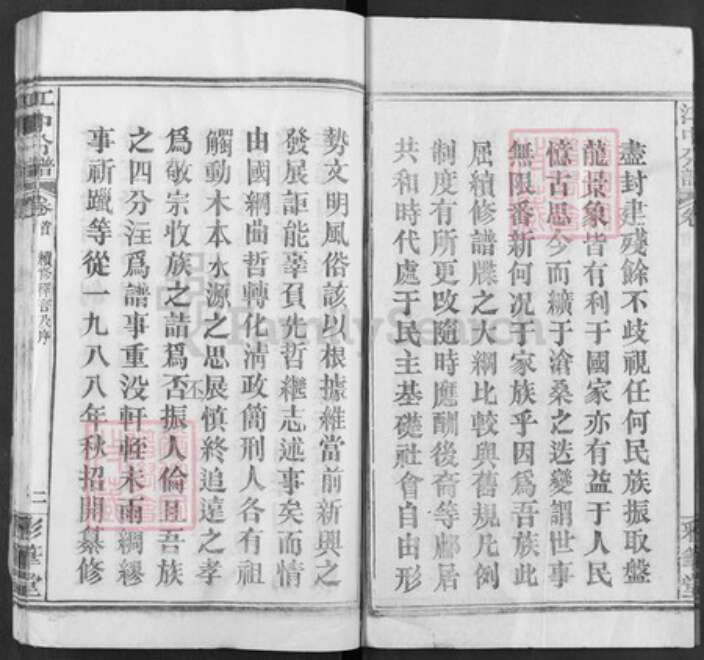 盡封建殘餘不歧視任何民族振取盤
龍景象皆有利于國家亦有益于人民
憶古思今而續于滄桑之迭變謂世事
無限番新何况于家族乎因爲吾族此
屆續修譜牒之大綱比較與舊規凡例
制度有所更改隨時應酬後裔等鄉居
共和時代處于民主基礎社會自由形
勢文明風俗該以根據維當前新興之
發展詎能辜負先哲繼志述事矣而情
由國綱曲哲轉化清政简刑人各有祖
觸動木本水源之思展慎終追遠之孝
爲敬宗收族之誥爲否不振人倫且吾族
之四分注爲譜事重没軒輊未雨綢繆
事祈躐等從一九八八年秋招開纂修
江中分譜
卷首
續修釋言及序
二
彩筆堂
江中分譜
卷
彩筆堂
FamilySearch